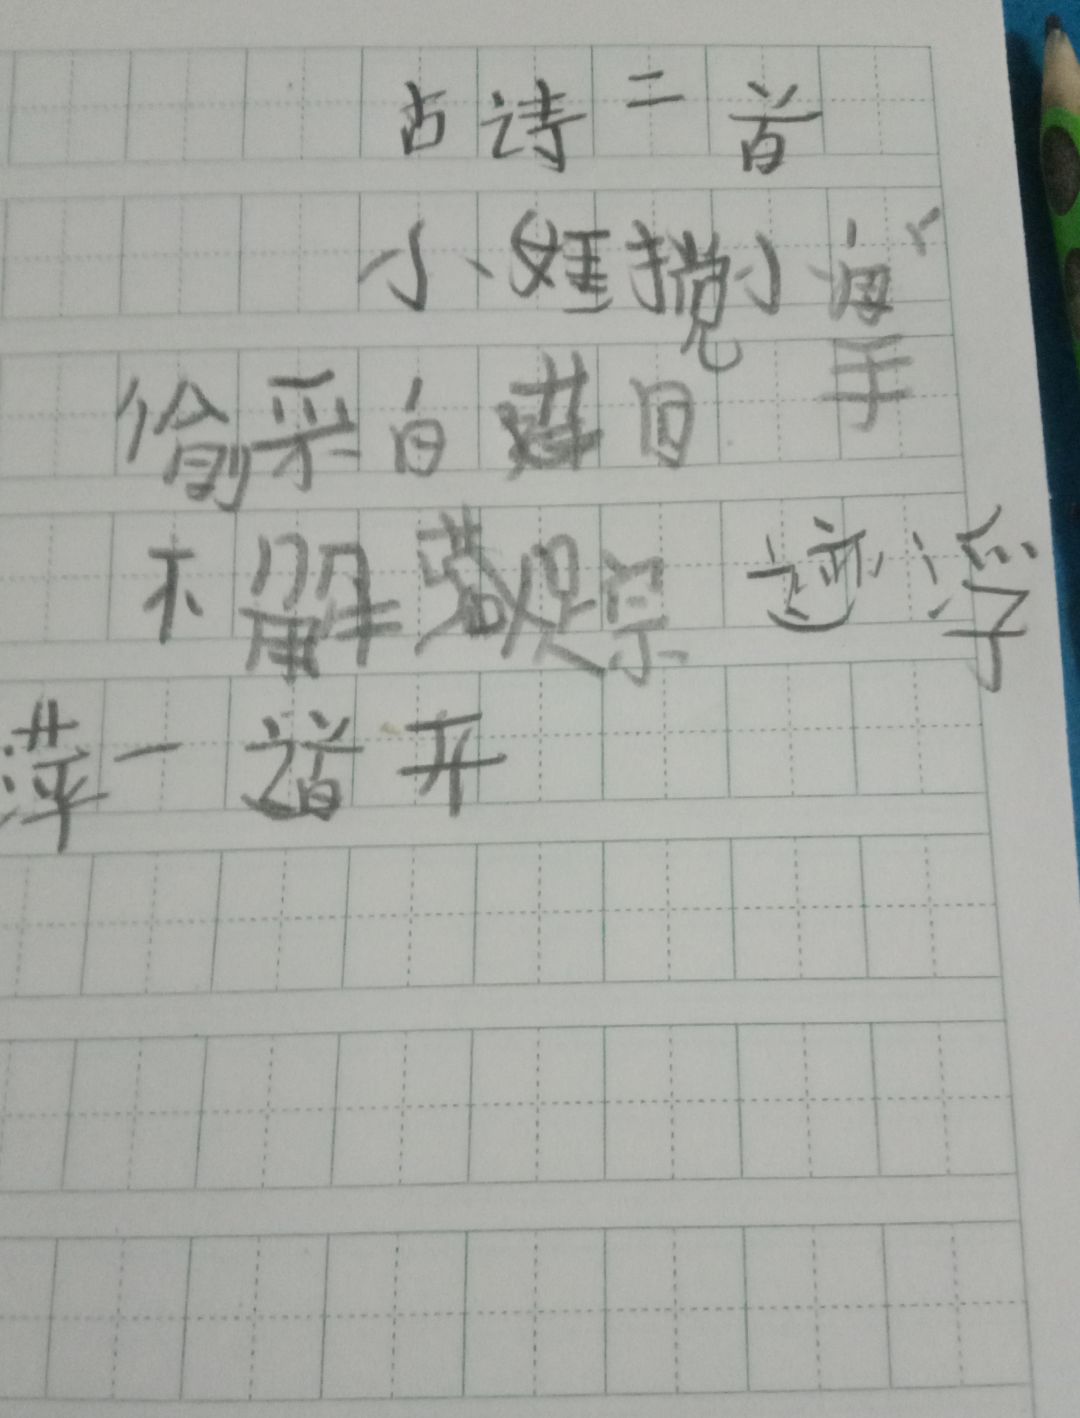 古诗二首
小娃撑小
偷采白
不解藏踪迹浮
萍一道开